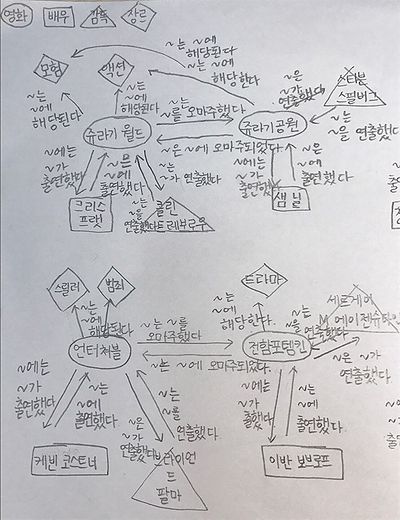 영화
배우
감독
장르
~는 ~에
해당된다
~는 ~에
해당한다
모험
액션
~는
~에
해당된다
~는
~에
해당된다
~는
~를 오마주했다
~은
~가
연출했다
스티븐
스필버그
쥬라기 월드
쥬라기공원
~는
~을 연출했다
~은 ~에 오마주되었다
~에는
~가
출연했다
~은
~에
출연했다
~는
~가 연출했다
~에는
~가
출연했다
~은
~에
출연했다
크리스
프랫
~는
~을
연출했다
콜린
트레보로우
샘 닐
스릴러
범죄
드라마
~는
~에
해당된다
~는 ~를
오마주했다
~는
~에
해당한다.
~는
~을 연출했다
세르게이
M. 에이젠슈타인
언터처블
전함포템킨
~는 ~에 오마주되었다.
~은 ~가
연출했다
~에는
~가
출연했다
~는
~에
출연했다
~는
~를
연출했다
~은
~가
연출했다
~에는
~가
출연했다
~는
~에
출연했다
케빈 코스트너
브라이언
드
팔마
이반 보브로프